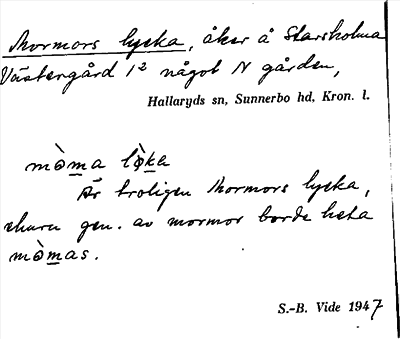 Mormors lycka, åker å Starsholma
Västergård 1² något N gården,
Hallaryds sn, Sunnerbo hd, Kron. l.
mòma lỳka
Är troligen Mormors lycka,
ehuru gen. av mormor borde heta
mòmas.
S.-B. Vide 1947